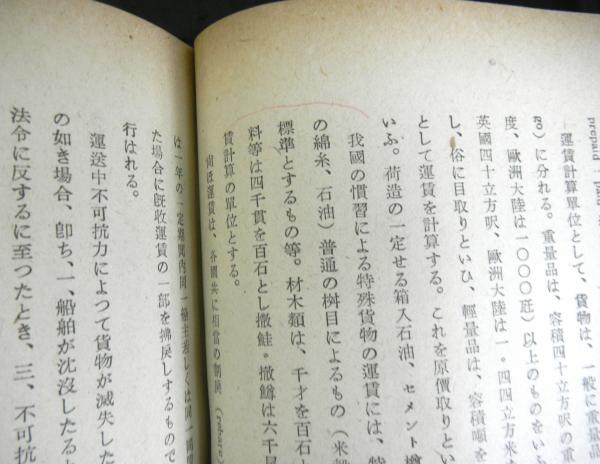 prepaid
運賃計算單位として、貨物は、一般に重量品
go) に分れる。重量品は、容積四十立方呎の重
度、歐洲大陸は一〇〇〇瓩) 以上のものをいふ
英國四十立方呎、歐洲大陸は一・四四立方米、
し、俗に目取りといひ、輕量品は、容積噸を
として運賃を計算する。これを原價取りとい
いふ。荷造の一定せる箱入石油、セメント樽
我國の慣習による特殊貨物の運賃には、特
の綿糸、石油) 普通の桝目によるもの (米穀
標準とするもの等。材木類は、千才を百石と
料等は四千貫を百石とし撒鮭。撒鱒は六千尾
賃計算の單位とする。
尙ほ運賃は、各國共に相當の割戾
は一年の一定期間內同一船主若しくは同一期間
た場合に旣收運賃の一部を拂戾しするもので
行はれる。
運送中不可抗力によつて貨物が滅失した
の如き場合、卽ち、一、船舶が沈沒したると
法令に反するに至つたとき、三、不可抗